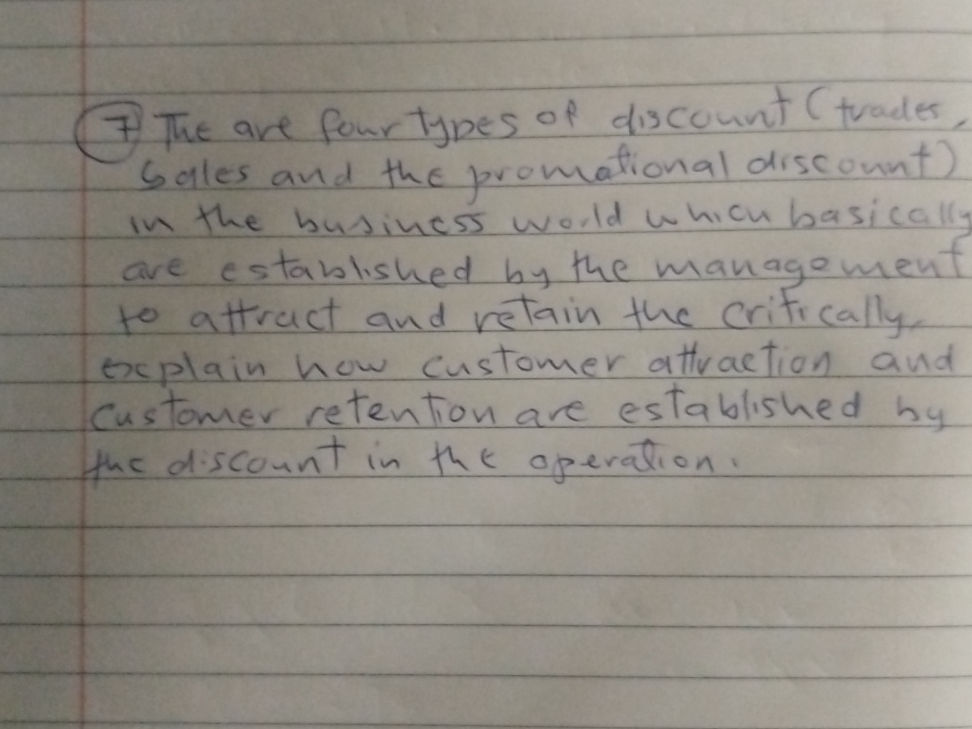 7 The are four types of discount (trades,
Sales and the promotional discount)
in the business world which basically
are established by the management
to attract and retain the critically,
explain how customer attraction and
customer retention are established by
the discount in the operation.